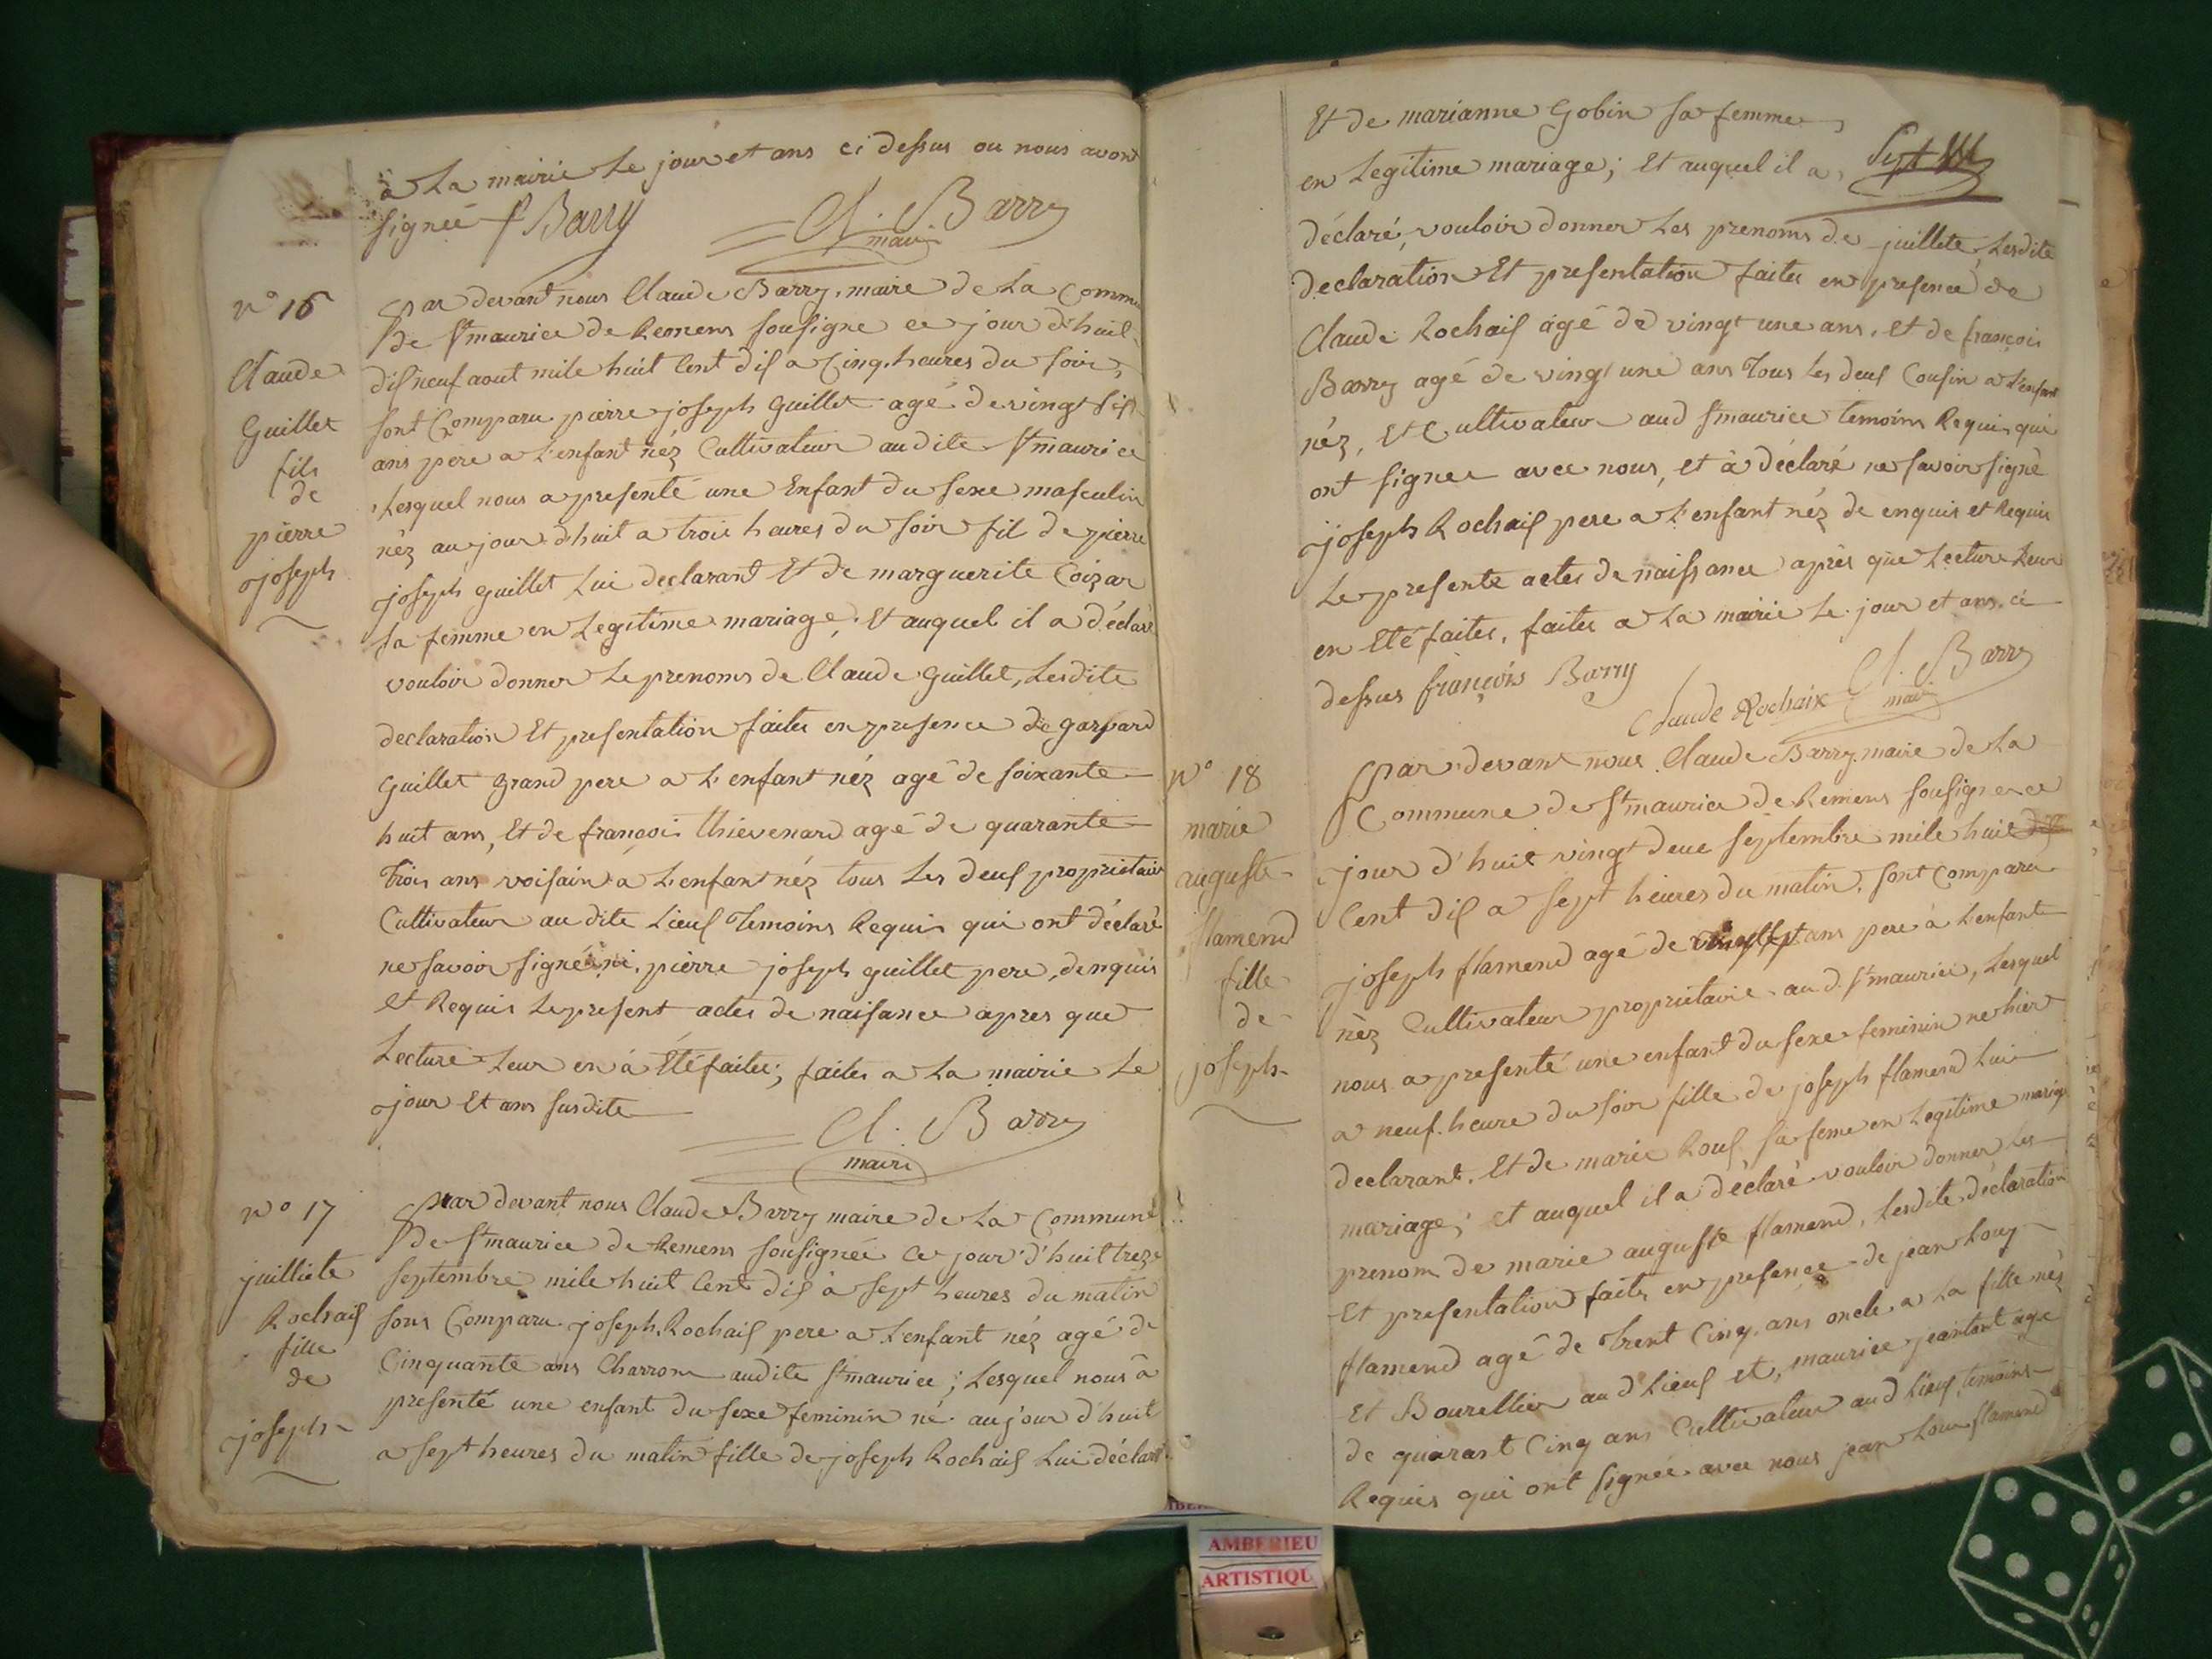 à La mairie Le jour et ans ci dessus ou nous avont
signée f Barry Cl. Barry
maire
n° 16
Claude
Guillet
fils
de
pierre
joseph
par devant nous Claude Barry, maire de La Commu
de St maurice de Remens sousigne ce jour d'huit
dis neuf aout mile huit Cent dis a Cinq heures du soir,
sont Comparu pierre joseph Guillet agé de vingt
ans pere a L'enfant néz Cultivateur audite St maurice
Lesquel nous a presenté une Enfant du sexe masculin
néz aujour d'huit a trois heures du soir fil de pierre
joseph guillet Lui declarant Et de marguerite Coizar
sa femme en Legitime mariage, Et auquel il a déclaré
vouloir donner Le prenoms de Claude Guillet, Lesdite
declaration Et presentation faites en presence de gaspard
Guillet grand pere a L'enfant néz agé de soixante
huit ans, Et de françois thievenard agé de quarante
trois ans voisain a L'enfant néz tous Les deus proprietaire
Cultivateur au dite Lieus Temoins Requis qui ont déclaré
ne savoir signé ni pierre joseph guillet pere, denquis
et Requis Le present actes de naisance apres que
Lecture Leur en à Été faites; faites a La mairie Le
jour Et ans susdite
Cl. Barry
maire
n° 17
juilliete
Rochais
fille
de
joseph
par devant nous Claude Barry maire de La Commune
de St maurice de Remens sousignée Ce jour d'huit treze
septembre mile huit Cent dis à sept heures du matin
sons Comparu joseph Rochais pere a L'enfant néz agé de
Cinquante ans Charron audite St maurice; Lesquel nous à
presenté une enfant du sexe feminin né aujour d'huit
a sept heures du matin fille de joseph Rochais Lui déclarant
Et de marianne Gobin sa femme
en Legitime mariage; Et auquel il a
déclaré, vouloir donner Les prenoms de juillete, Lesdite
declaration Et presentation faites en presence de
Claude Rochais agé de vingt une ans, et de françois
Barry agé de vingt une ans Tous Les deus Cousin a L'enfant
néz, Et Cultivateur aud St maurice temoins Requis qui
ont signee avec nous, et à déclaré ne savoir signé
joseph Rochais pere a L'enfant néz de enquis et Requis
Le presente actes de naissance après que Lecture Leur
en Eté faites, faites a La mairie Le jour et ans ci
dessus françois Barry Claude Rochaix Cl. Barry
maire
n° 18
marie
auguste
flamend
fille
de
joseph
par devant nous Claude Barry maire de La
Commune de St maurice de Remens sousigne ce
jour d'huit vingt deue septembre mile huit
Cent dis a sept heures du matin, sont Comparu
joseph flamend agé de ans pere à L'enfant
néz Cultivateur proprietaire au d. St maurice, Lesquel
nous a presenté une enfant du sexe feminin ne hier
a neuf heure du soir fille de joseph flamend Lui
declarant, Et de marie Rous sa feme en Legitime mariage
mariage; et auquel il a déclaré vouloir donner Les
prenom de marie auguste flamend, Lesdite déclaration
Et presentation faites en presence de jean Louy
flamend agé de trent Cinq ans oncle a La fille nés
Et Bourellier au d Lieus et, maurice jeantant agé
de quarant Cinq ans Cultivateur aud Lieus temoins
Requis qui ont signée avec nous jean Loui flamend
AMBERIEU
ARTISTIQU